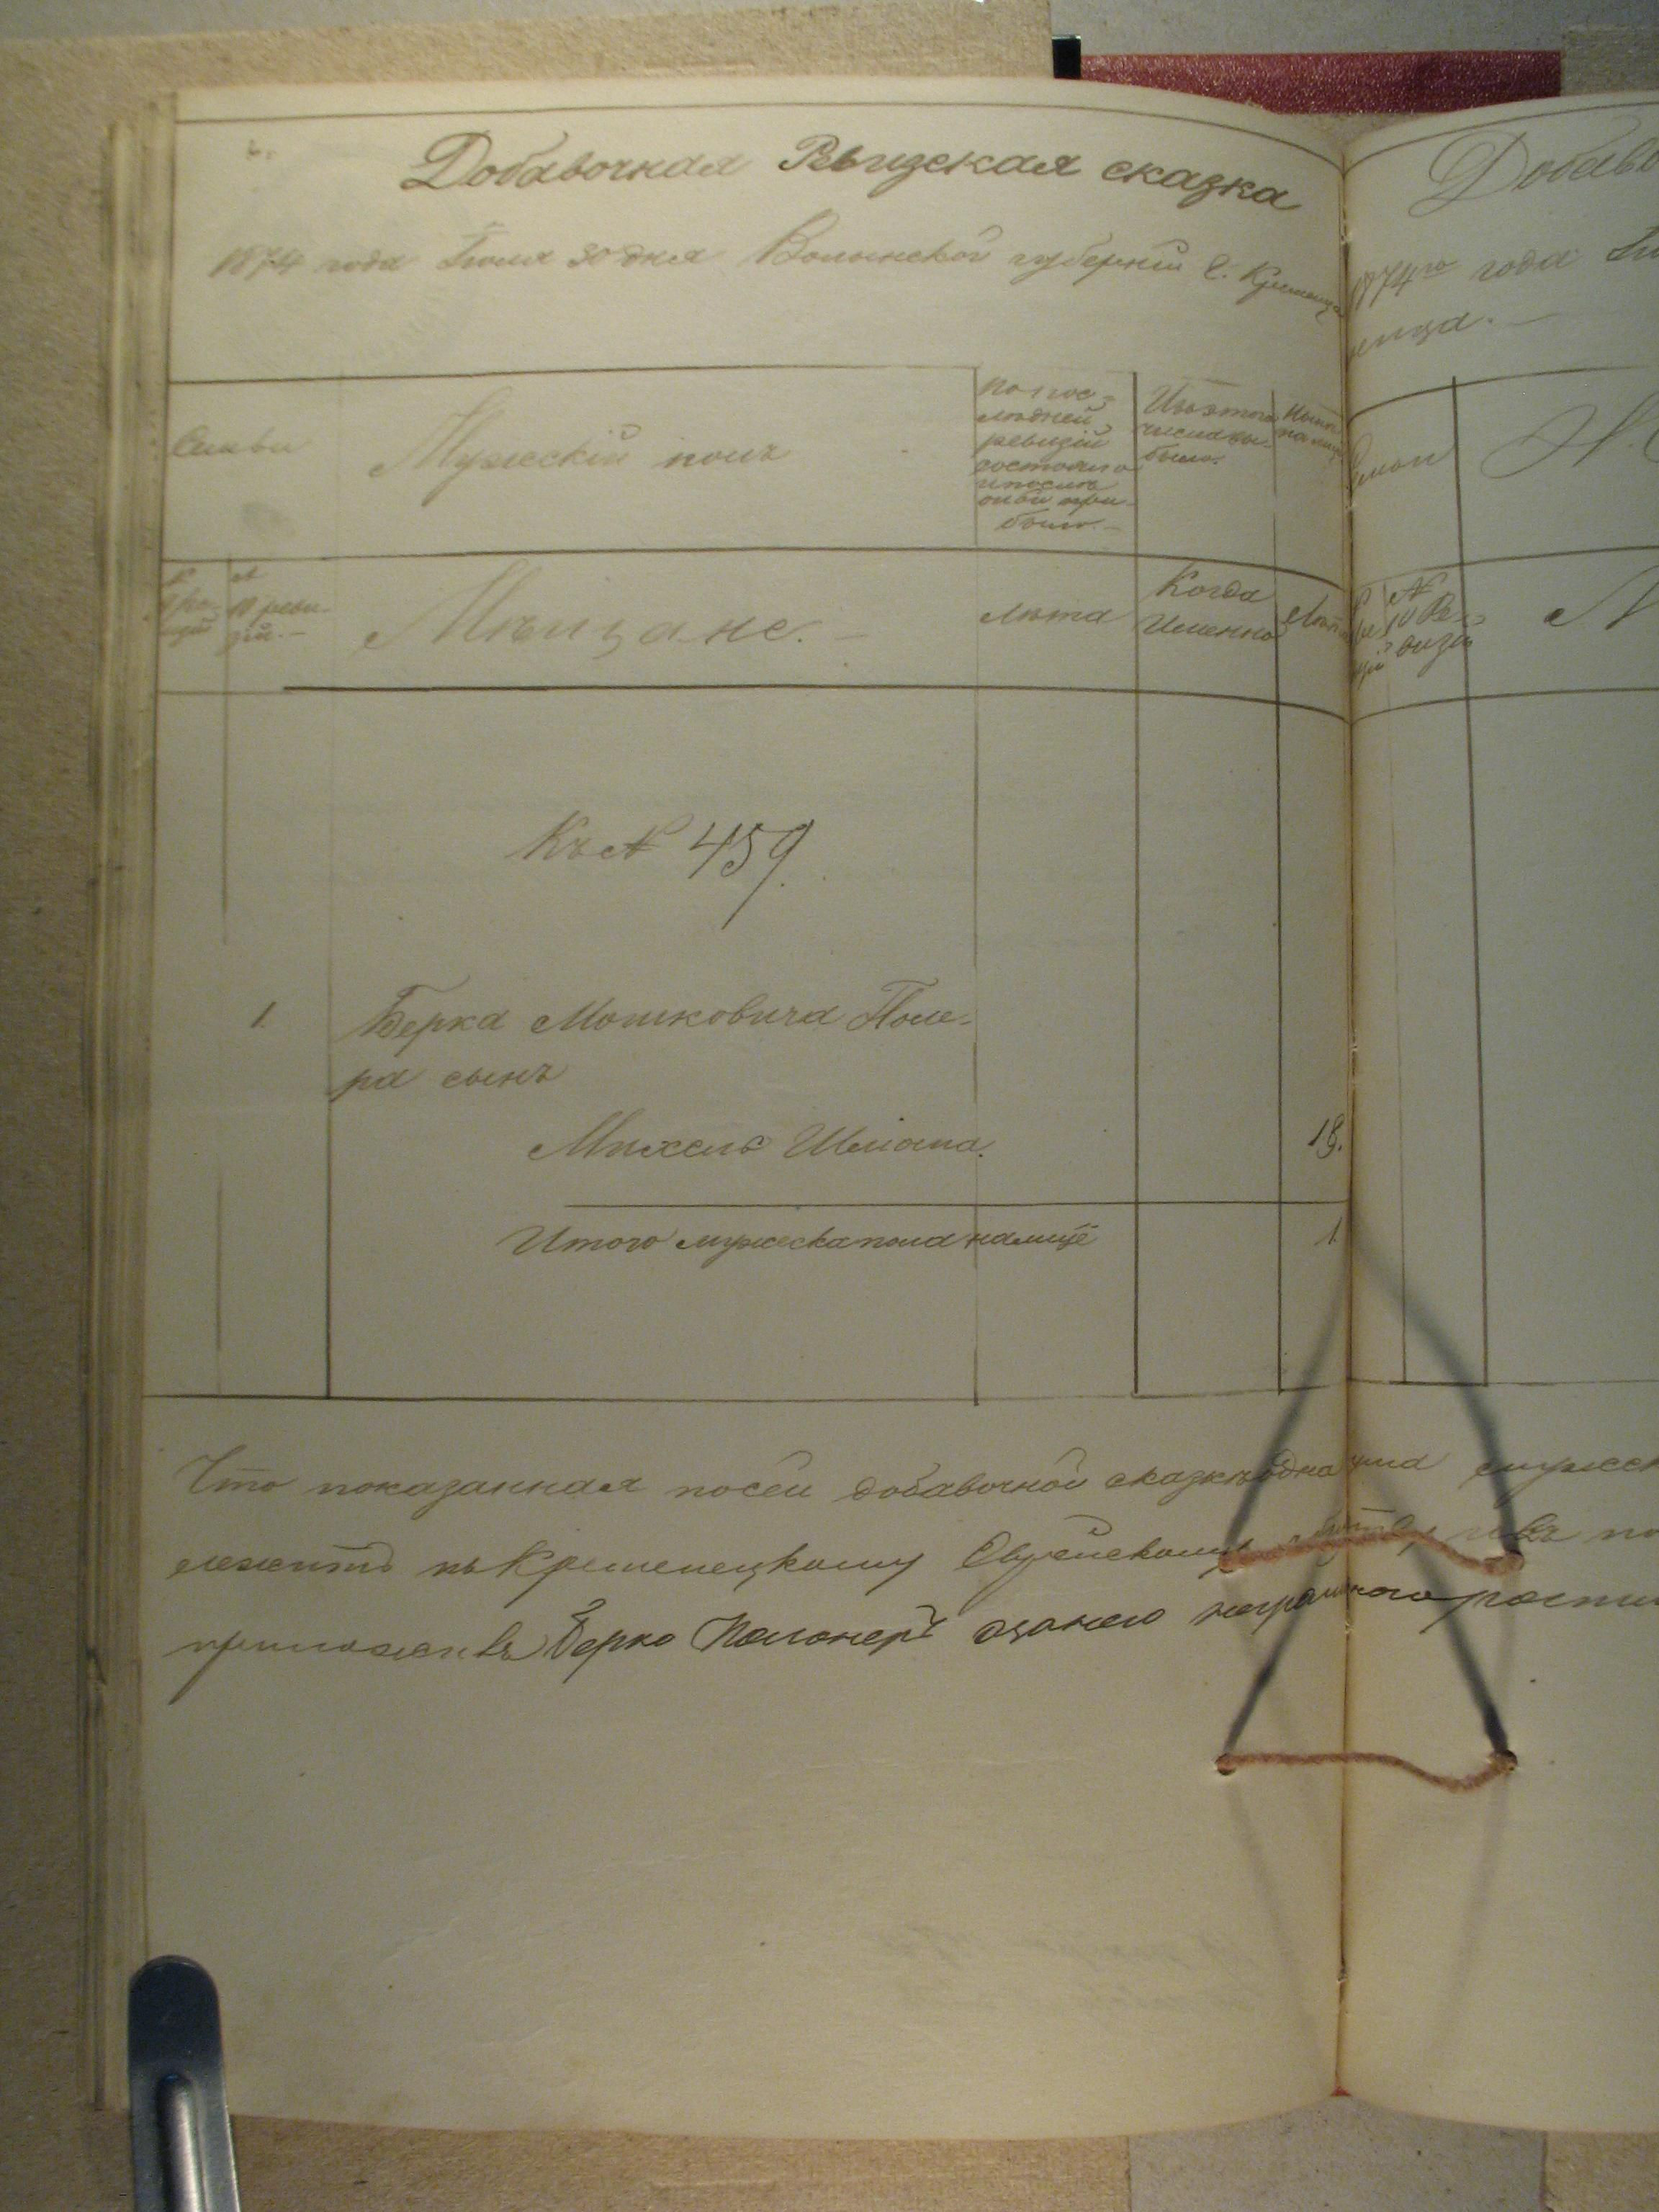 Добавочная Ревизская сказка
1874 года Iюля 30 дня Волынской губернiи Г. Кременца
Семьи
Мужескiй полъ
По пос-
лѣдней
ревизiи
состояло
и послѣ
оной при-
было.—
Изъ этого
числа вы-
было.
Нынѣ
на лицо
№
10 реви-
зiи.—
Мѣщане.—
Лѣта
Когда
Именно
Лѣта
Къ № 459.
1.
Берка Мошковича Поле-
ра сынъ
Михель Шліома.
18.
Итого мужеска пола на лицо
1
Что показанная по сей добавочной сказкѣ одна душа мужеск
лежитъ къ Кременецкому Еврейскому
Берко
Добаво
1874го года Iю
енца.—
Семьи
№
10 Ре-
визiи